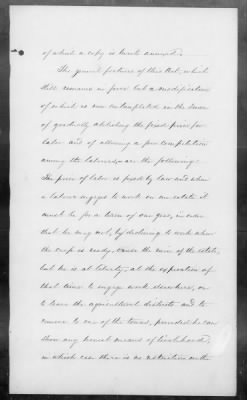 of which a copy is hereto annexed.
The general features of this Act, which
still remains in force but a modification
of which is now contemplated in the sense
of gradually abolishing the fixed price for
labor and of allowing a free competition
among the laborers are the following:
The price of labor is fixed by law and when
a laborer engages to work on an estate it
must be for a term of one year, in order
that he may not, by declining to work when
the crop is ready, cause the ruin of the estate,
but he is at liberty, at the expiration of
that time to engage work elsewhere, or
to leave the agricultural districts and to
remove to one of the towns, provided he can
show any honest means of livelihood,
in which case there is no restriction on the